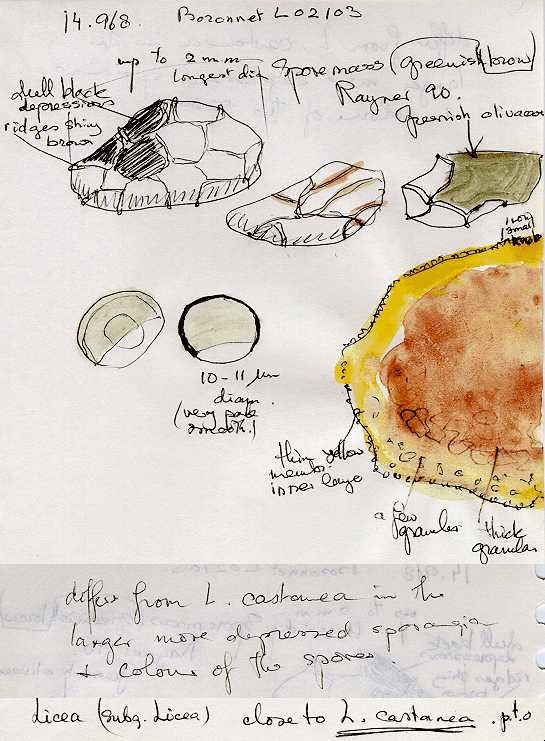 14.968 Bozonnet L02103
up to 2 mm
longest dia
Spore mass (greenish brown)
Rayner 90.
Greenish olivaceou
dull black
depressions
ridges shiny
brown
small
10-11 µm
diam.
(very pale
smooth.)
thin yellow
membr.
inner layer
a few
granules
thick
granular
differs from L. castanea in the
larger more depressed sporangia
+ colour of the spores.
Licea (subg. Licea) close to L. castanea . p.t.o